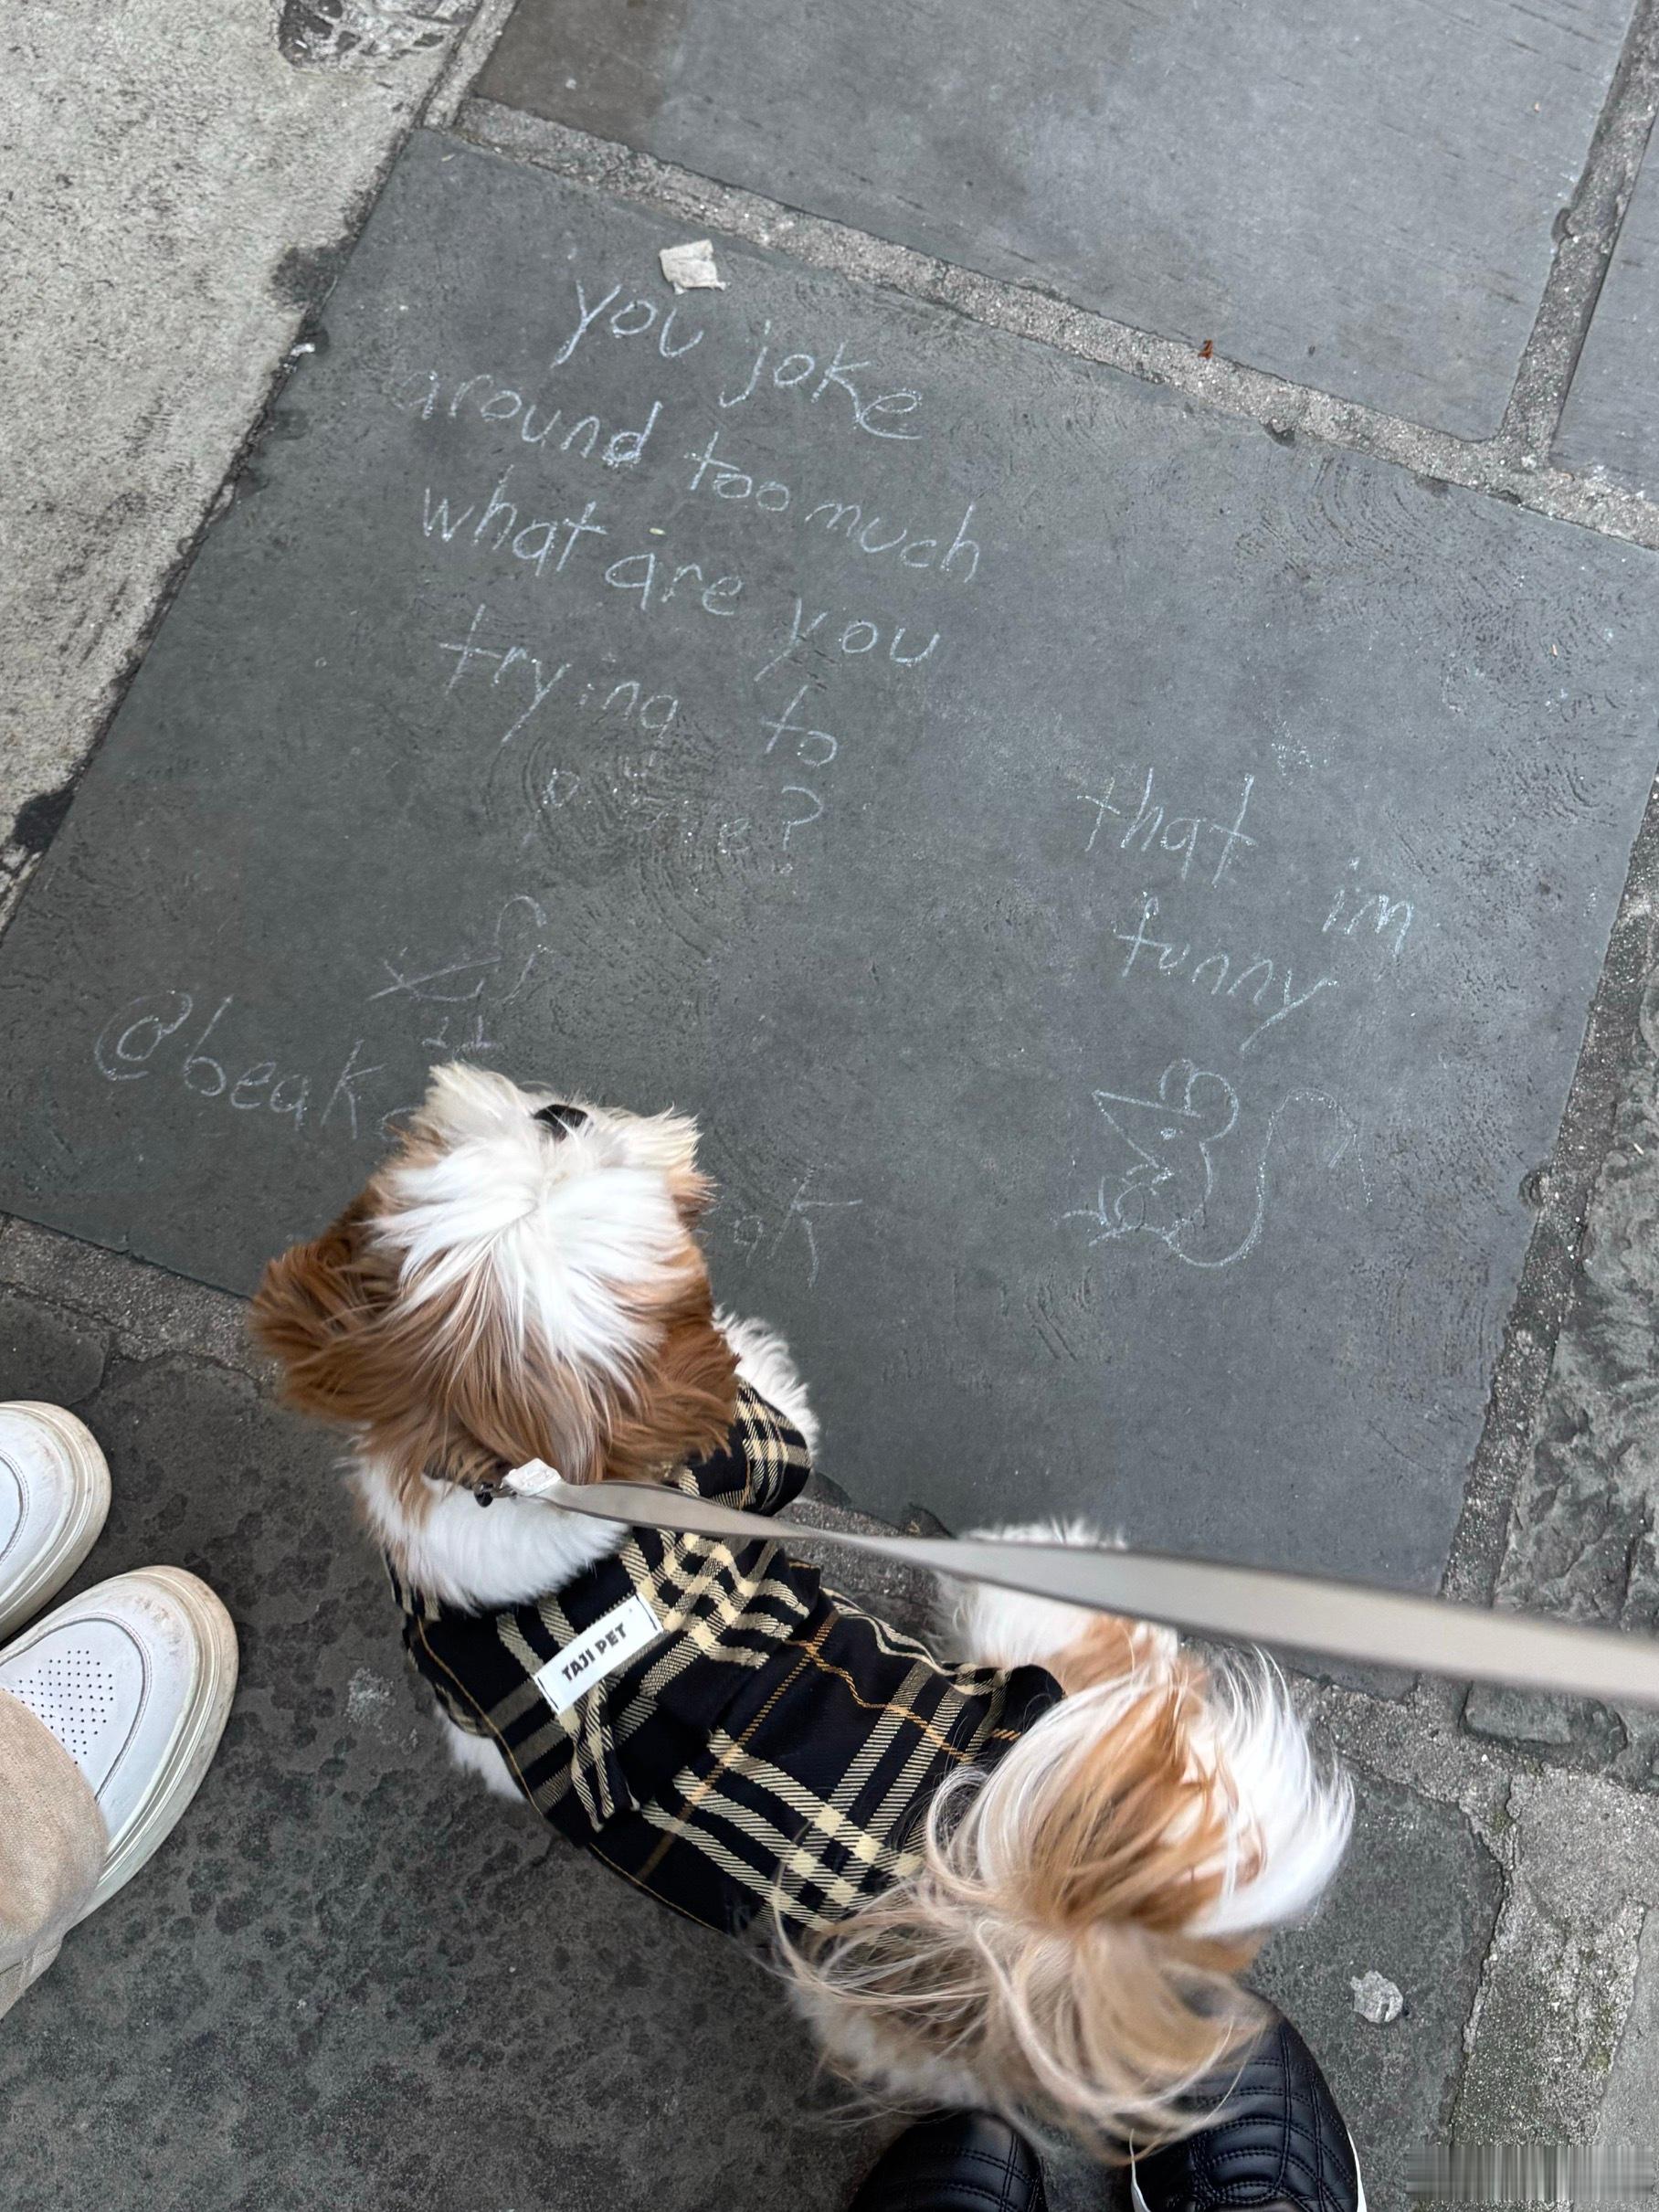 you joke
around too much
what are you
trying to
that im
funny
TAJI PET